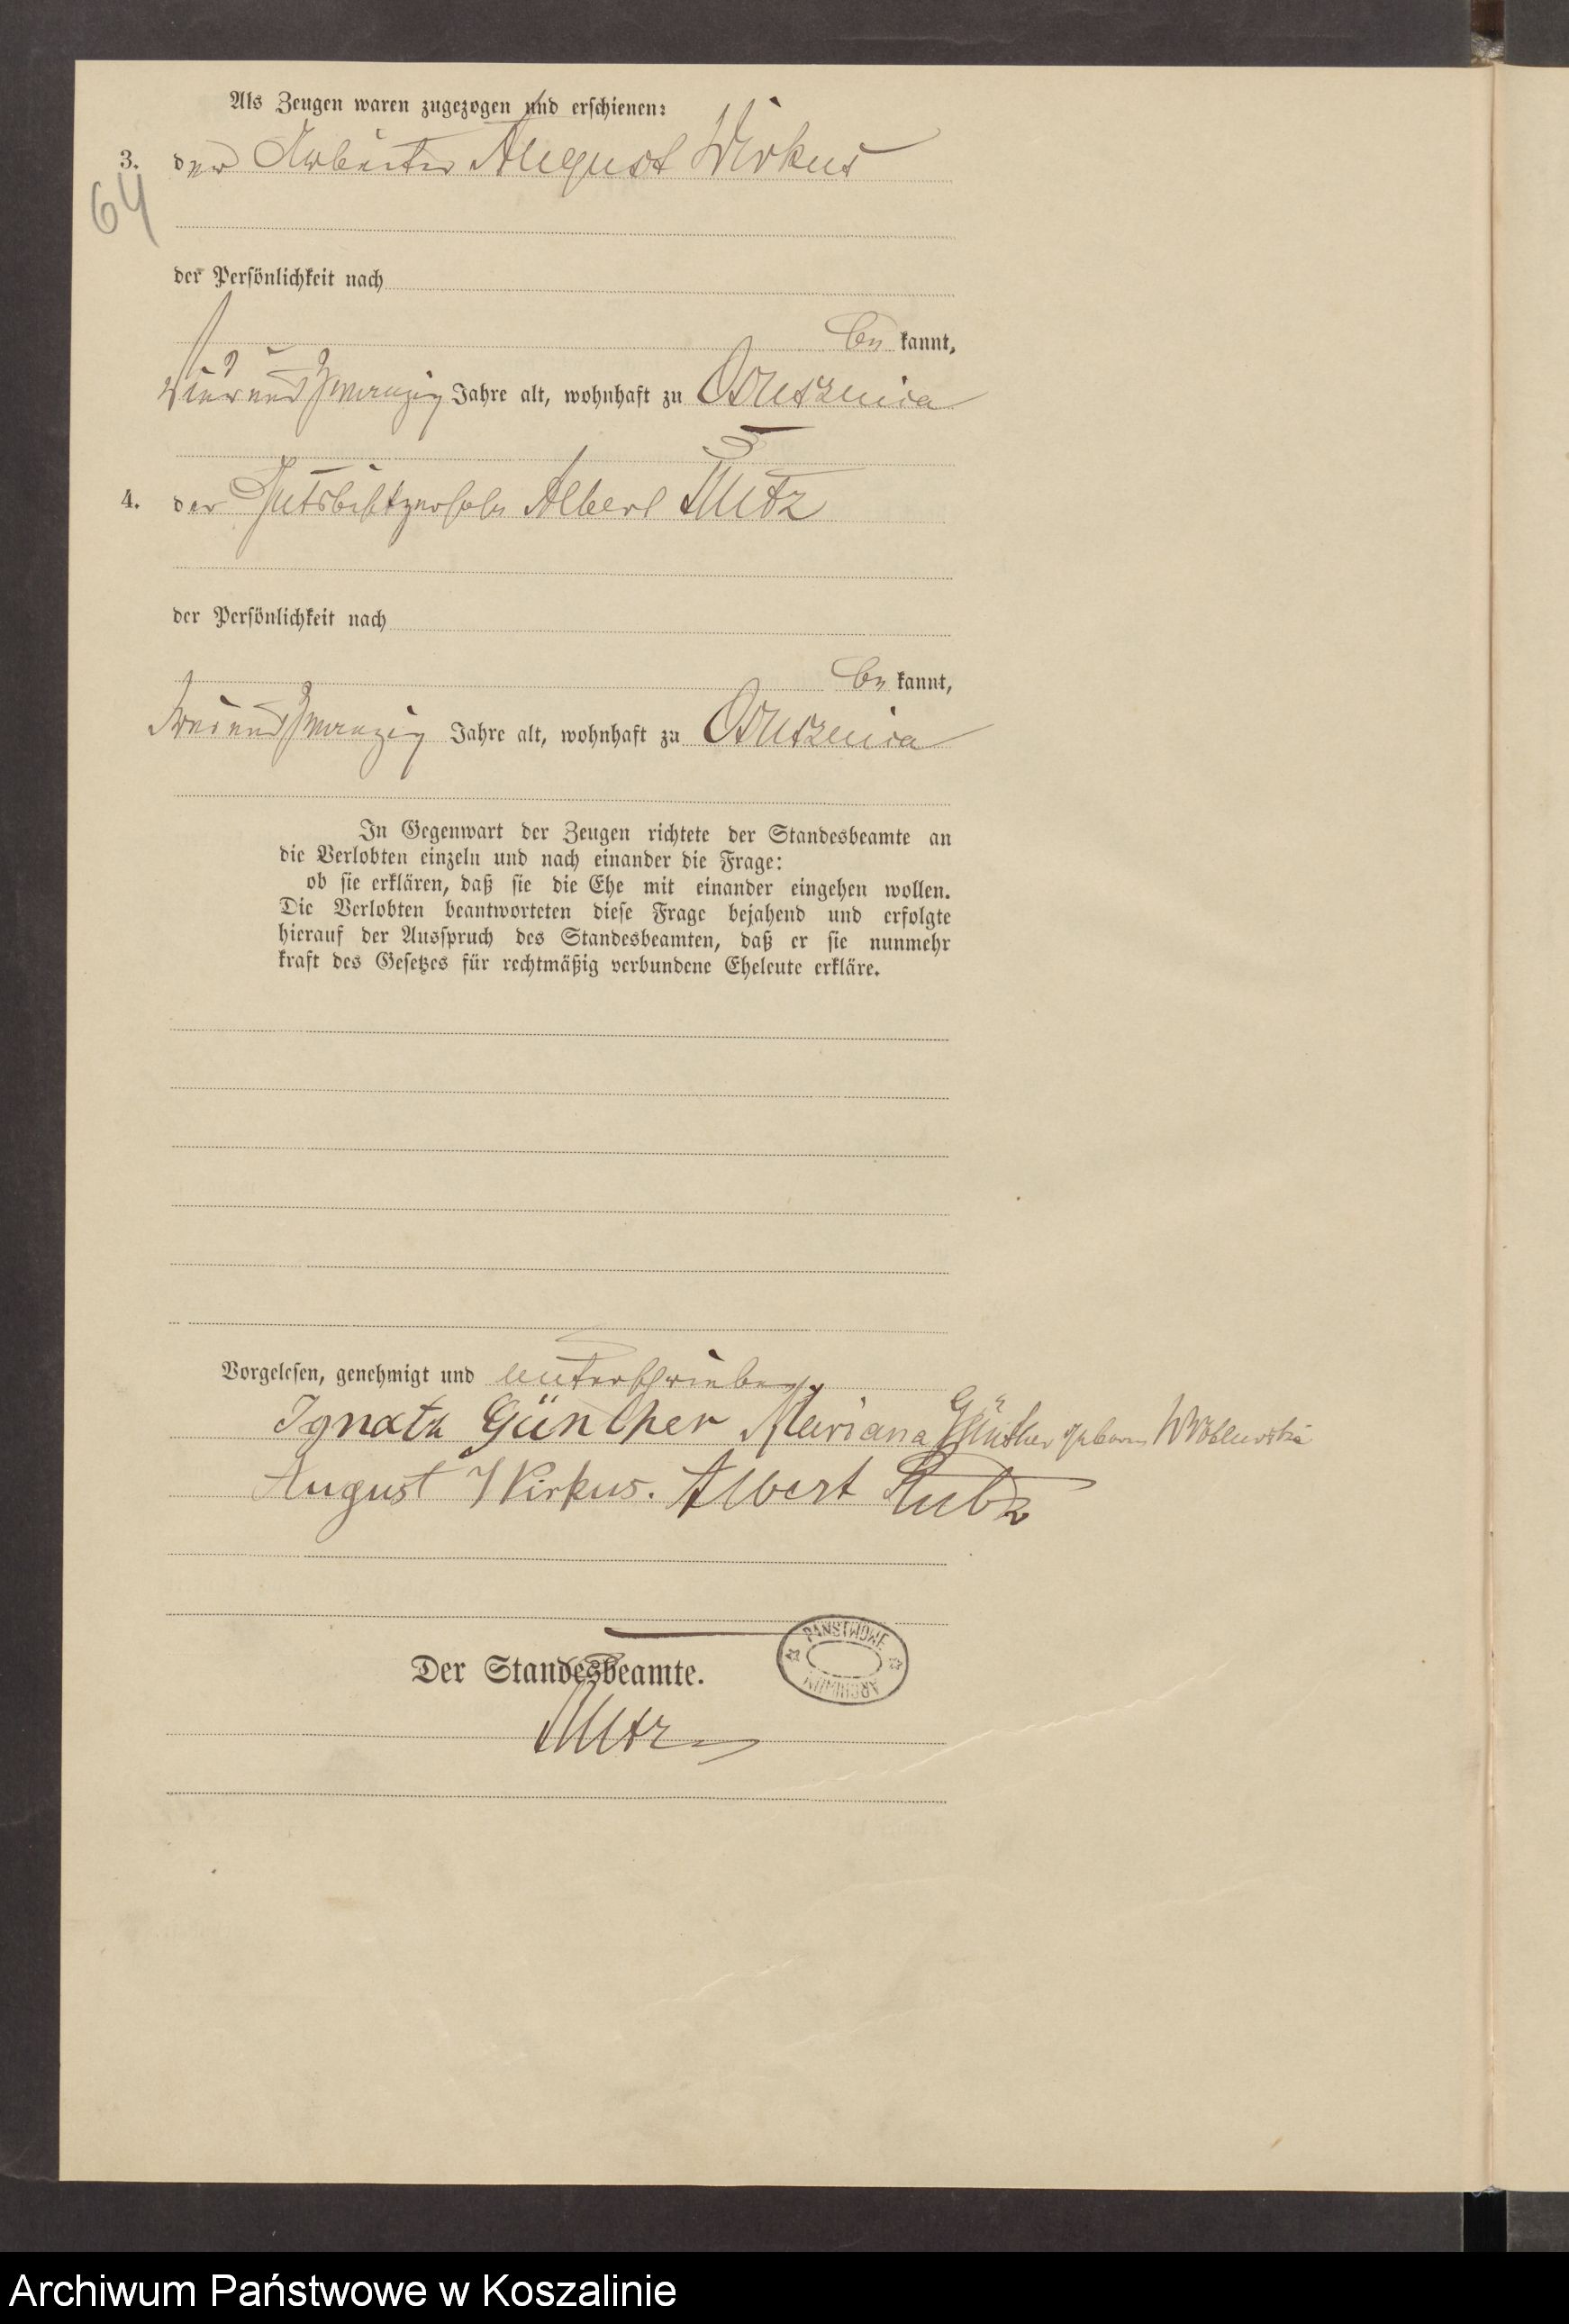 Als Zeugen waren zugezogen und erschienen:
3. der Arbeiter August Wirkus
64
der Persönlichkeit nach
be kannt,
vier und zwanzig Jahre alt, wohnhaft zu Ostrusznica
4. der Gutsbesitzersohn Albert Rutz
der Persönlichkeit nach
be kannt,
zwei und zwanzig Jahre alt, wohnhaft zu
In Gegenwart der Zeugen richtete der Standesbeamte an
die Verlobten einzeln und nach einander die Frage:
ob sie erklären, daß sie die Ehe mit einander eingehen wollen.
Die Verlobten beantworteten diese Frage bejahend und erfolgte
hierauf der Ausspruch des Standesbeamten, daß er sie nunmehr
kraft des Gesetzes für rechtmäßig verbundene Eheleute erkläre.
Vorgelesen, genehmigt und unterschrieben
Ignatz Günther Mariana Günther geborene
August Wirkus. Albert Rutz
PAŃSTWOWE
ARCHIWUM
Der Standesbeamte.
Rutz
Archiwum Państwowe w Koszalinie